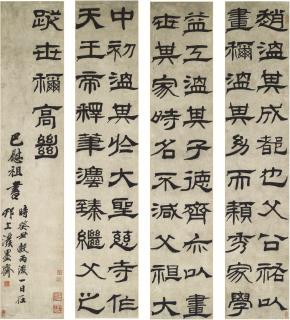 趙溫其成都也父公祐以
畫稱溫其幼而穎秀家學
益工溫其子德齊亦以畫
世其家時名不減父祖大
中初溫其於大聖慈寺作
天王帝釋筆灋臻繼父之
蹤世稱高絕
巴慰祖書
時癸丑穀雨後一日在
邗上 墨齋